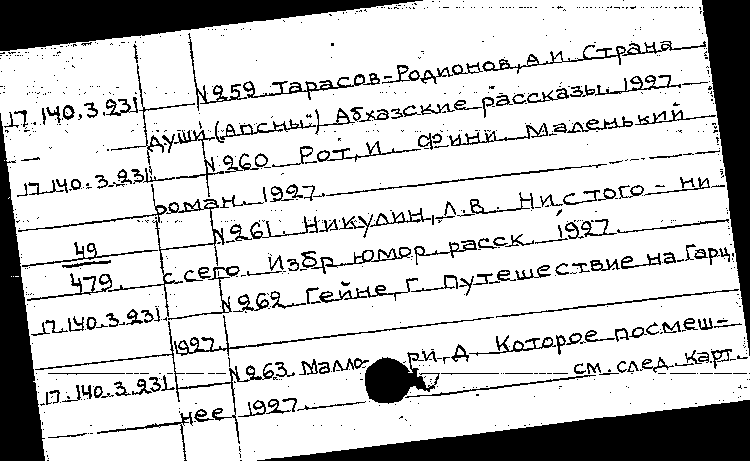 17.140.3.231 N259 Тарасов-Родионов, А.И. Страна
души (Апсны") Абхазские рассказы. 1927.
17.140.3.231. N260. Рот, И. Фини. Маленький
роман. 1927.
49 N261. Никулин, Л.В. Ни с того - ни
479. с сего. Избр. юмор. расск. 1927.
17.140.3.231 N262 Гейне, Г. Путешествие на Гарц.
1927.
17.140.3.231 N263. Маллори, Д. Которое посмеш-
нее. 1927. см. след. карт.